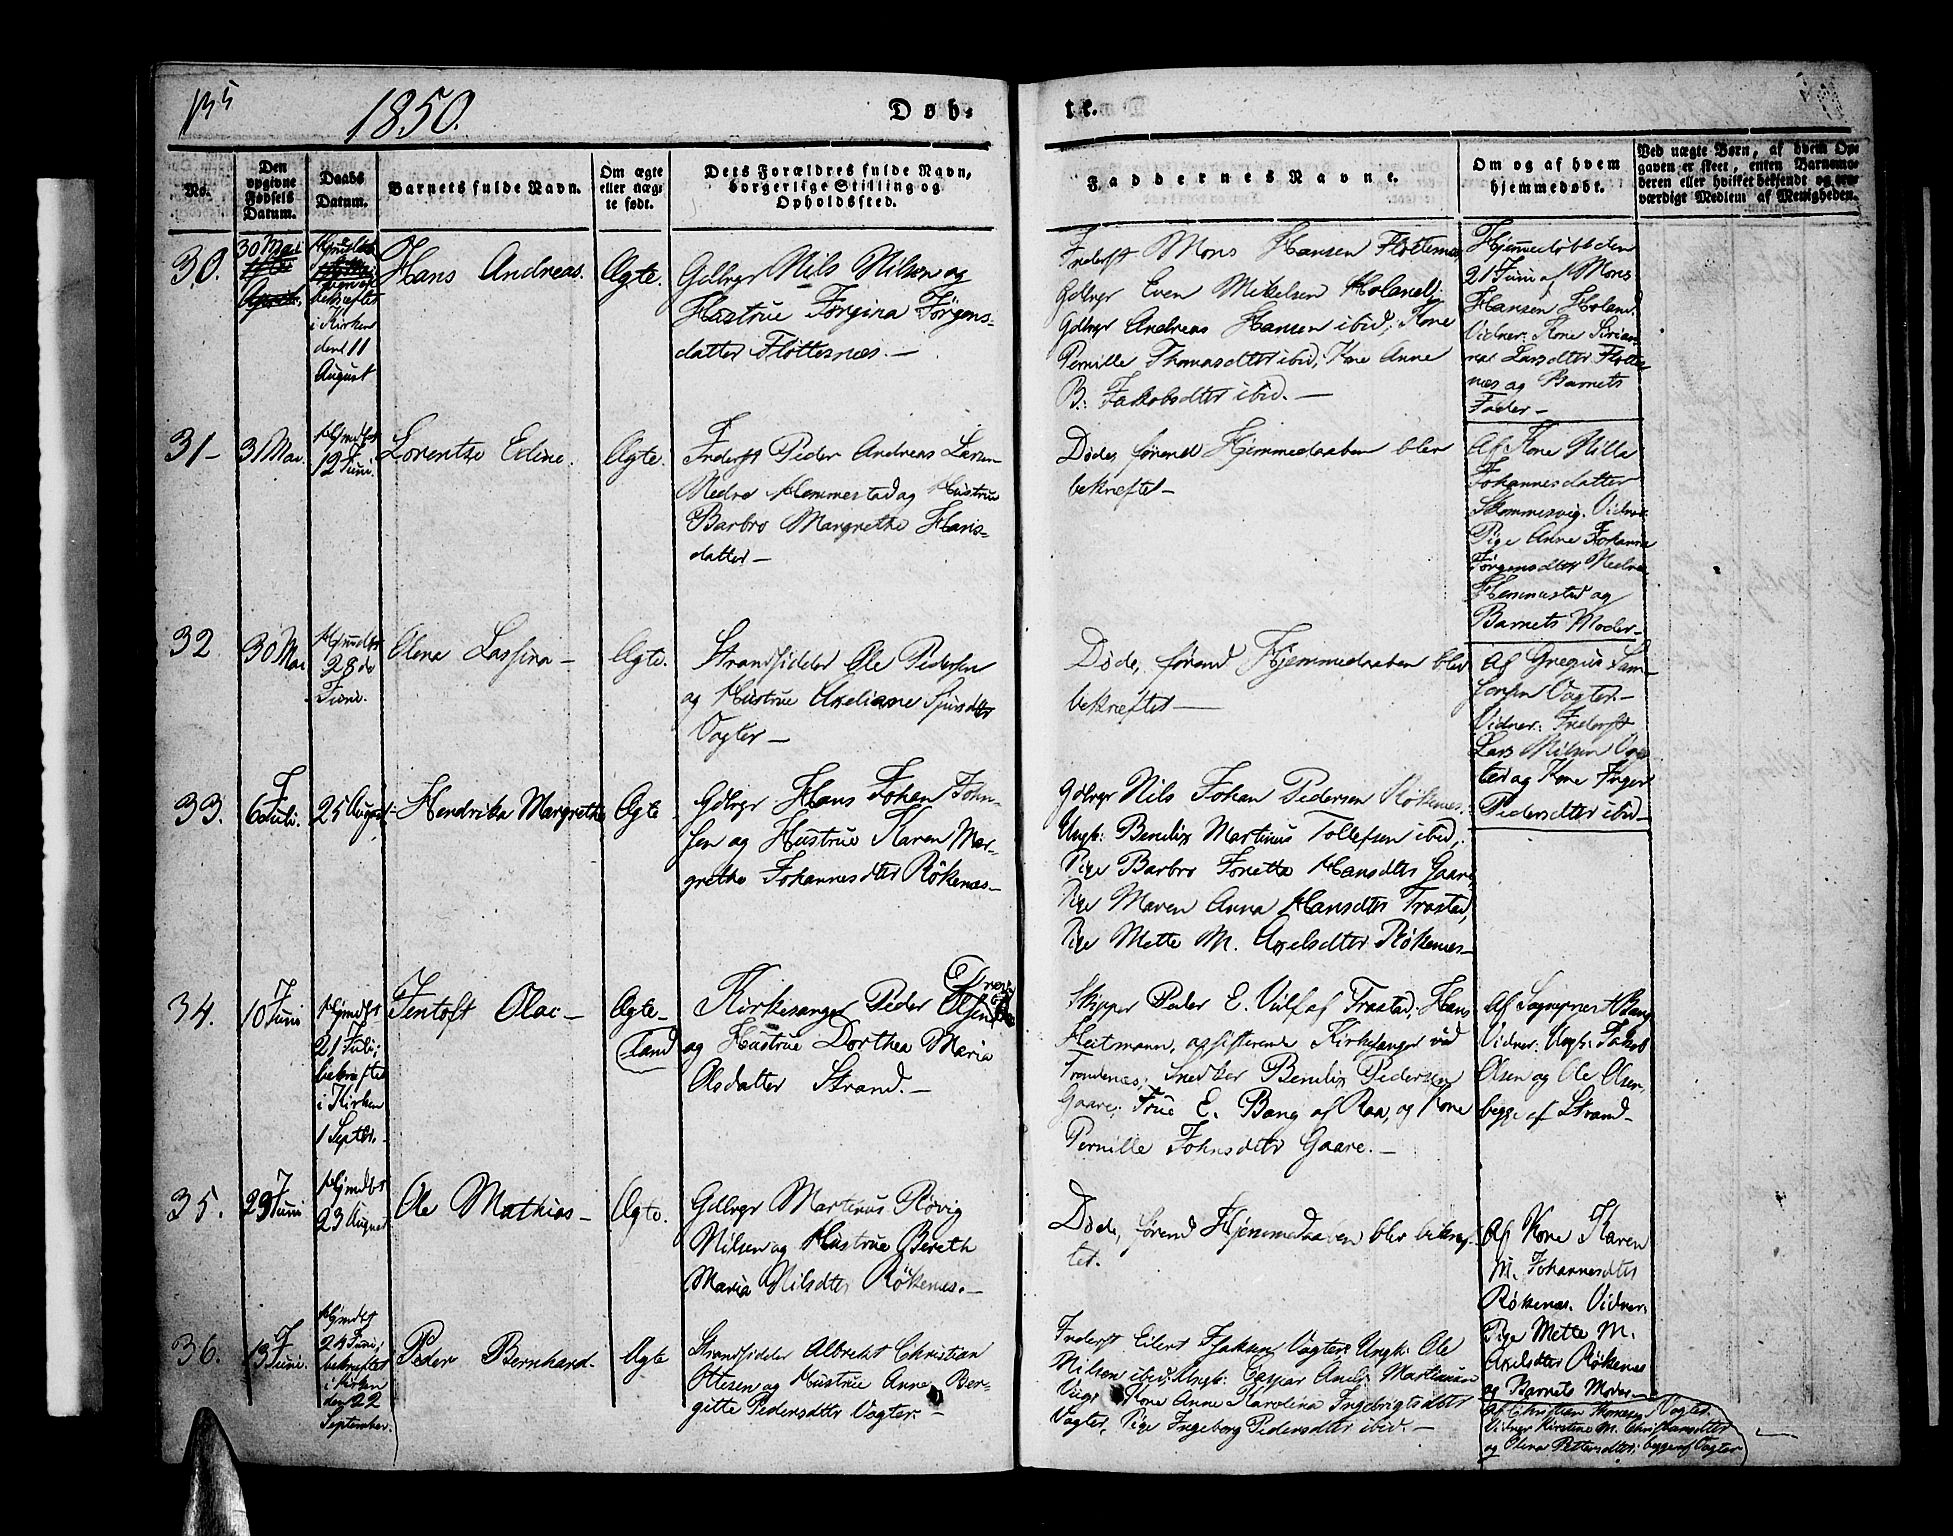 135
1850.
Døb-
te.
No.
Den
opgivne
Fødsels
Datum.
Daabs
Datum.
Barnets fulde Navn.
Om ægte
eller uæg-
te født.
Dets Forældres fulde Navn,
borgerlige Stilling og
Opholdssted.
Faddernes Navne.
Om og af hvem
hjemmedøbt.
Ved uægte Børn, af hvem Op-
gaven er skeet, enten Barnemo-
deren eller hvilket bekjendt og tro-
værdigt Medlem af Menigheden.
30.
30 Mai
bekræftet
i Kirken
den 11
August
Hans Andreas.
Ægte.
Gdbrgr Nils Nilsen og
Hustrue Jørgina Jørgens-
datter Fløttesnæs. —
Inderst Mons Hansen Flottesnæs
Gdbrgr Even Mikelsen Holand,
Gdbrgr Andreas Hansen ibid, Kone
Pernille Thomasdtter ibid, Kone Anne
B. Jakobsdtter ibid. —
Hjemmedøbt den
21 Juni af Mons
Hansen Holand.
Vidner: Kone
Larsdtter Flotte-
næs og Barnets
Fader —
31 —
31 Mai.
Hjmdbt
12 Juni.
Lorentze Edine.
Ægte.
Inderst Peder Andreas Larsen
Nedre Hemmestad og Hustrue
Barbro Margrethe Hans-
datter —
Døde, førend Hjemmedaaben blev
bekræftet —
Af Kone Nille
Johannesdatter
Vidner:
Pige Anne Johanna
Jørgensdtter Nedre
Hemmestad og
Barnets Moder —
32
30 Mai
Hjmdbt
28de
Juni.
Olena —
Ægte.
Strandsidder Ole Pedersen
og Hustrue Axeliane
Vogter —
Døde, førend Hjemmedaaben blev
bekræftet —
Af Gregus Sam-
Vogter —
Vidner: Inderst
Lars Nilsen Vog-
ter og Kone Inger
Pedersdtter ibid —
33.
6 Juli.
25 August
Hendrika Margrethe
Ægte
Gdbrgr Hans Johan John-
sen og Hustrue Karen Mar-
grethe Johannesdtter Røkenæs —
Gdbrgr Nils Johan Pedersen Røkenæs.
Ungk: Bendix Martinus Tollefsen ibid,
Pige Barbro Jonetta Hansdtter Gaare,
Pige Maren Anna Hansdtter Trastad,
Pige Mette M. Axelsdtter Røkenæs —
34.
10 Juni
Hjmdbt
21 Juli;
bekræftet
i Kirken
1 Septbr.
Jentoft Olai —
Ægte —
Kirkesanger Peder Olsen
og Hustrue Dorthea Maria
Olsdatter Strand. —
Skipper Peder E. Ulf af Trastad, Hans
Heitmann, assisterende Kirkesanger ved
Trondenæs, Snedker Bendix Pedersen
Gaare, Frue E. Bang af Raa, og Kone
Pernille Johnsdtter Gaare. —
Af Sognepræst Bang
Vidner: Ungk: Jakob
Olsen og Ole Olsen,
begge af Strand —
35.
29 Juni
Hjmdbt
23 August
Ole Mathias —
Ægte.
Gdbrgr Martinus Røvig
Nilsen og Hustrue Bereth
Maria Nilsdtter Røkenæs. —
Døde, førend Hjemmedaaben blev bekræf-
tet.
Af Kone Karen
M. Johannesdtter
Røkenæs. Vidner:
Pige Mette M.
Axelsdtter Røkenæs
og Barnets Moder —
36.
13 Juni.
Hjmdbt
24 Juni;
bekræftet
i Kirken
den 22
September.
Peder Bernhard.
Ægte
Strandsidder Albrekt Christian
Ottesen og Hustrue Anne Ber-
gitte Pedersdtter Vogter. —
Inderst Eilert Vogter, Ungk: Ole
Nilsen ibid, Ungk: Caspar Martinsen
Kone Anne Karolina Ingebrigtsdtter
Vogter, Pige Ingeborg Pedersdtter ibid. —
Af Christian Vogter.
Vidner Kirstine M. Christiansdtter
og Olena Pettersdtter, begge af Vogter